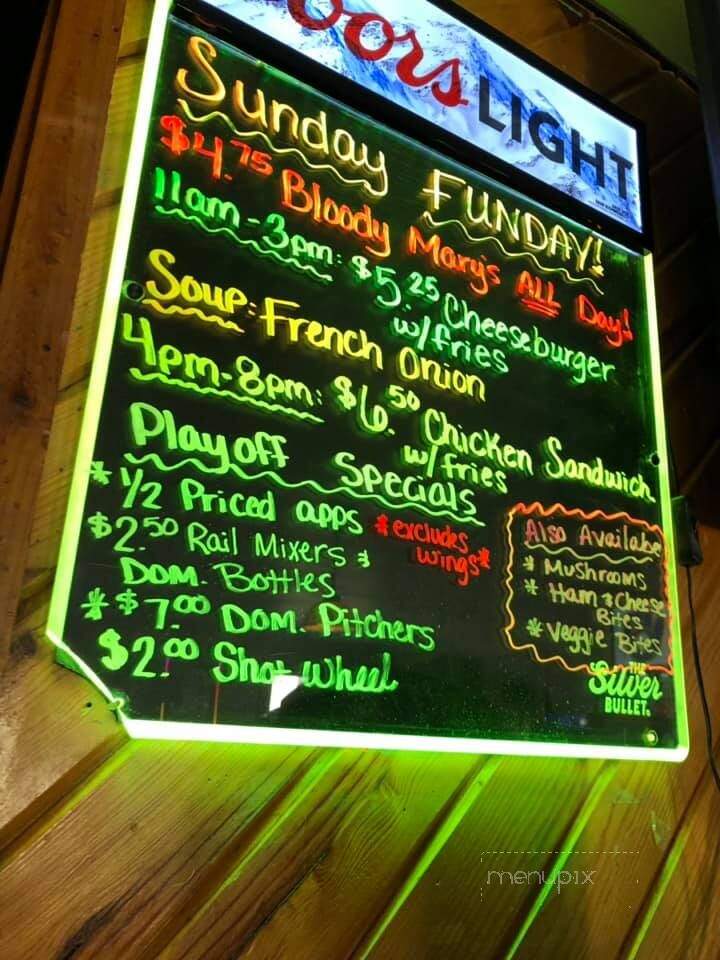 Coors LIGHT
Sunday FUNDAY!
$4.75 Bloody Mary's ALL Day!
11am-3pm: $5.25 Cheeseburger
w/fries
Soup: French Onion
4pm-8pm: $6.50 Chicken Sandwich
w/fries
Playoff Specials
* 1/2 Priced apps *excludes
wings*
$2.50 Rail Mixers &
DOM. Bottles
* $7.00 DOM. Pitchers
$2.00 Shot Wheel
Also Availabe
* Mushrooms
* Ham & Cheese
Bites
* Veggie Bites
THE
Silver
BULLET.
menupix